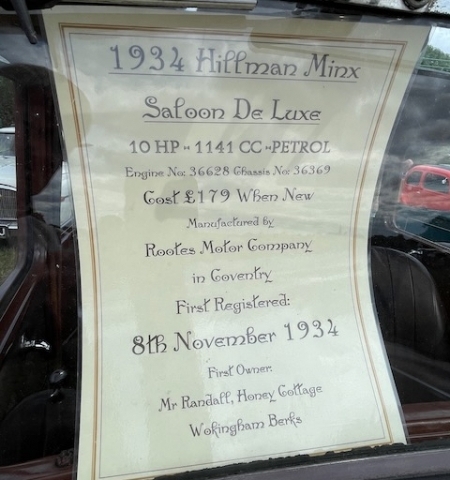 1934 Hillman Minx
Saloon De Luxe
10 HP - 1141 CC - PETROL
Engine No: 36628 Chassis No: 36369
Cost £179 When New
Manufactured by
Rootes Motor Company
in Coventry
First Registered:
8th November 1934
First Owner:
Mr Randall, Honey Cottage
Wokingham Berks